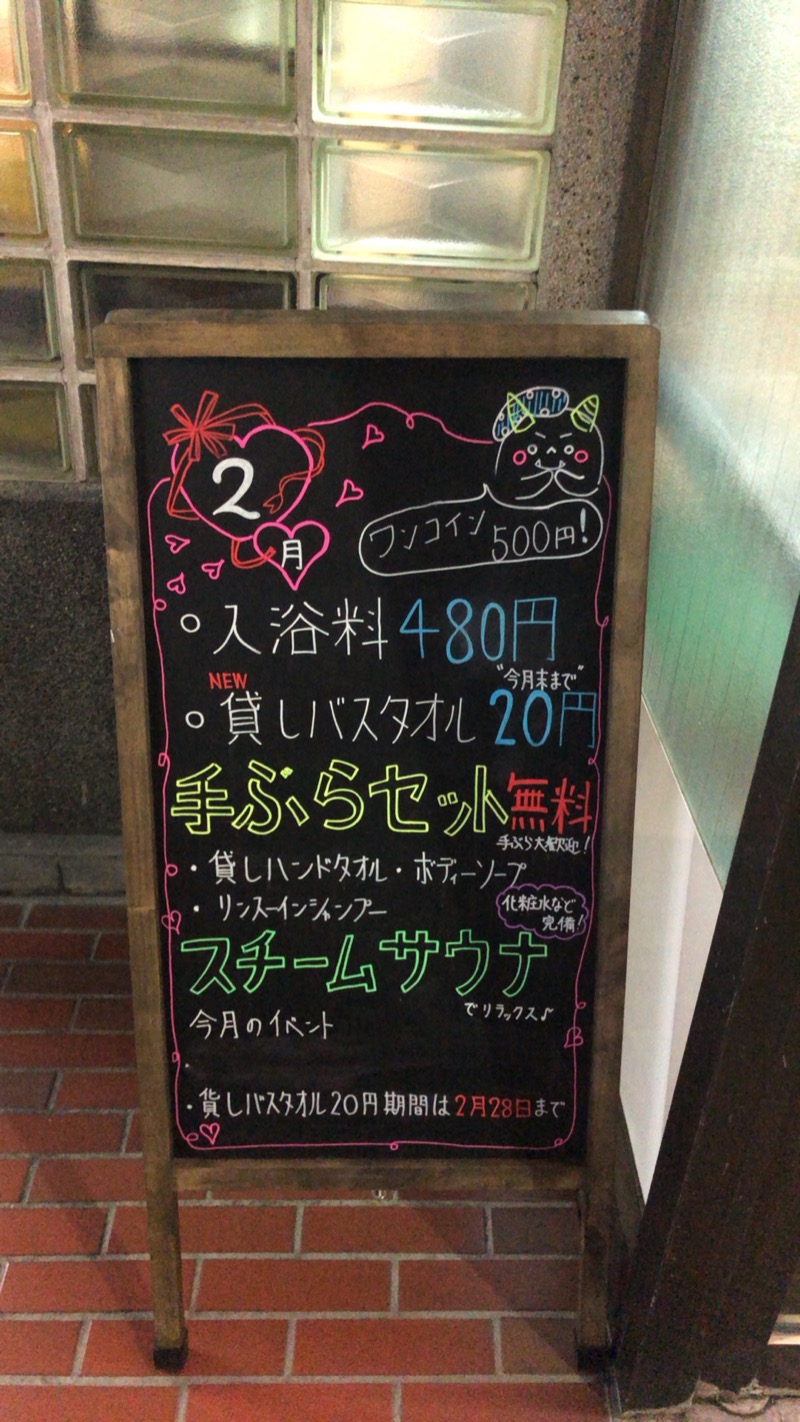 2
月
ワンコイン 500円!
○入浴料 480円
NEW
"今月末まで"
○貸しバスタオル 20円
手ぶらセット無料
手ぶら大歓迎!
・貸しハンドタオル・ボディーソープ
・リンスインシャンプー
化粧水など
完備!
スチームサウナ
でリラックス♪
今月のイベント
・
・貸しバスタオル20円期間は2月28日まで